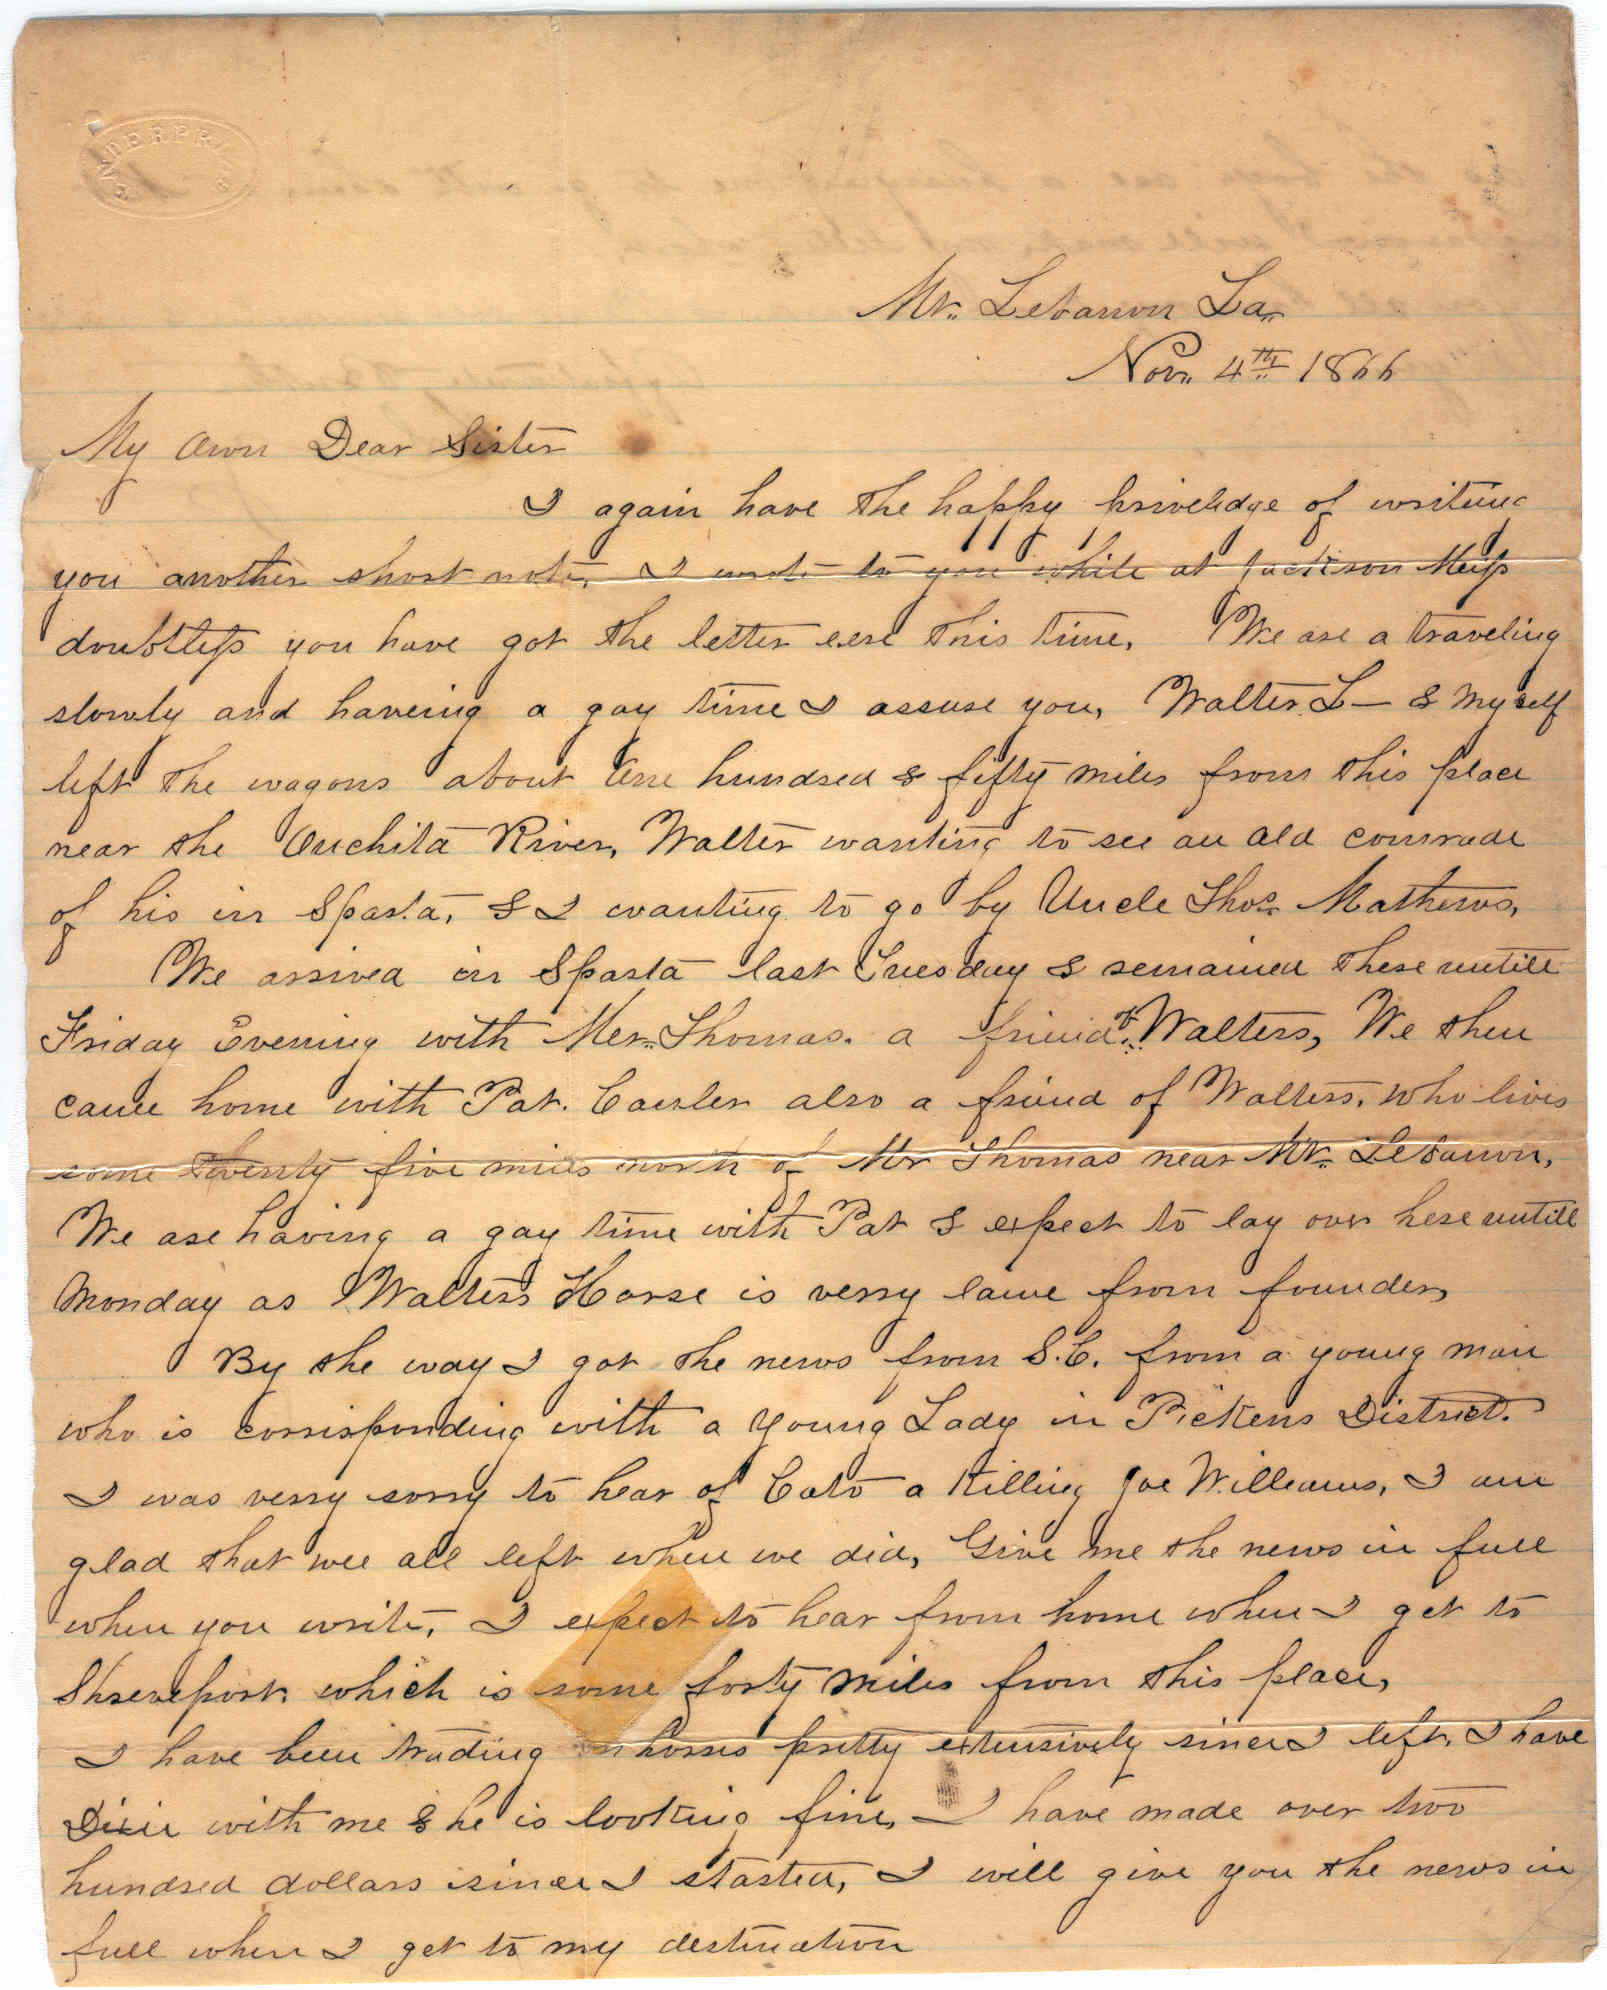 ENTERPRISE
Mt. Lebanon La,
Nov. 4TH 1866
My Own Dear Sister
I again have the happy priveledge of writing
you another short note, I wrote to you while at Jackson Miss
doubtless you have got the letter eere this time, We are a traveling
slowly and haveing a gay time I assure you, Walter L— & Myself
left the wagons about One hundred & fifty miles from this place
near the Ouchita River, Walter wanting to see an old comrade
of his in Sparta, & I wanting to go by Uncle Thos Mathews,
We arrived in Sparta last Tuesday & remained there untill
Friday Evening with Mr. Thomas. a friend of Walters, We then
came home with Pat. also a friend of Walters, who lives
some twenty five miles north of Mr Thomas near Mt. Lebanon,
We are having a gay time with Pat & expect to lay over here untill
Monday as Walters Horse is verry lame from founder,
By the way I got the news from S.C. from a young man
who is corrisponding with a young Lady in Pickens District.
I was verry sorry to hear of Cato a Killing Joe Williams, I am
glad that wee all left when we did, Give me the news in full
when you write, I expect to hear from home when I get to
Shreveport which is some forty miles from this place,
I have been trading in horses pretty extensively since I left, I have
Dixie with me & he is looking fine, I have made over two
hundred dollars since I started, I will give you the news in
full when I get to my destination